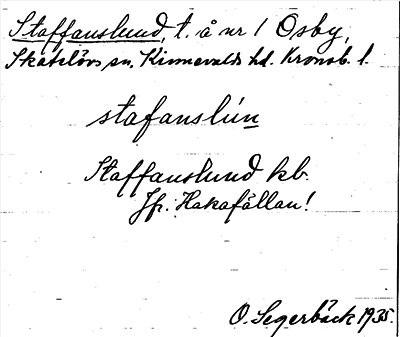 Staffanslund, t. å nr 1 Osby,
Skatelövs sn, Kinnevalds hd. Kronob. l.
stafanslún
Staffanslund kb.
Jfr. Hakafällan!
O. Segerbäck 1935.